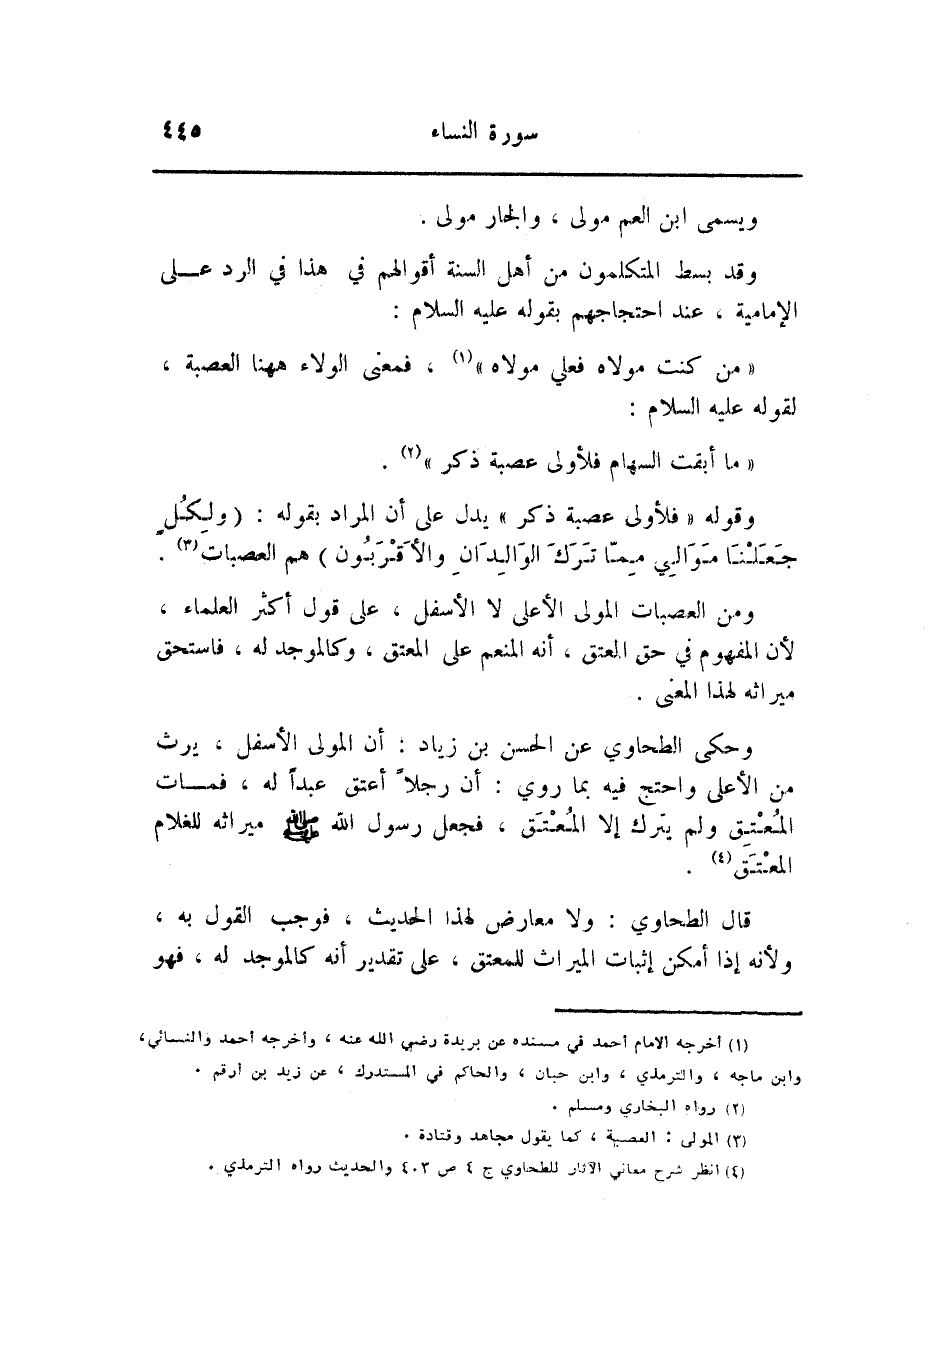 سورة النساء ٤٤٥
ويسمى ابن العم مولى ، والجار مولى .
وقد بسط المتكلمون من أهل السنة أقوالهم في هذا في الرد عـــلى
الإمامية ، عند احتجاجهم بقوله عليه السلام :
« من كنت مولاه فعلي مولاه »(١) ، فمعنى الولاء ههنا العصبة ،
لقوله عليه السلام :
« ما أبقت السهام فلأولى عصبة ذكر »(٢) .
وقوله « فلأولى عصبة ذكر » يدل على أن المراد بقوله : ( ولِكُلٍّ
جَعَلْنَا مَوَالِي مِمّا تَرَكَ الوَالِدَانِ والأقْرَبُون ) هم العصبات(٣) .
ومن العصبات المولى الأعلى لا الأسفل ، على قول أكثر العلماء ،
لأن المفهوم في حق المعتق ، أنه المنعم على المعتق ، وكالموجد له ، فاستحق
ميراثه لهذا المعنى .
وحكى الطحاوي عن الحسن بن زياد : أن المولى الأسفل ، يرث
من الأعلى واحتج فيه بما روي : أن رجلاً أعتق عبداً له ، فمـــات
المُعْتِق ولم يترك إلا المُعْتَق ، فجعل رسول الله ﷺ ميراثه للغلام
المعْتَق(٤) .
قال الطحاوي : ولا معارض لهذا الحديث ، فوجب القول به ،
ولأنه إذا أمكن إثبات الميراث للمعتق ، على تقدير أنه كالموجد له ، فهو
(١) أخرجه الامام أحمد في مسنده عن بريدة رضي الله عنه ، وأخرجه أحمد والنسائي،
وابن ماجه ، والترمذي ، وابن حبان ، والحاكم في المستدرك ، عن زيد بن أرقم .
(٢) رواه البخاري ومسلم .
(٣) المولى : العصبة ، كما يقول مجاهد وقتادة .
(٤) انظر شرح معاني الآثار للطحاوي ج ٤ ص ٤٠٣ والحديث رواه الترمذي .